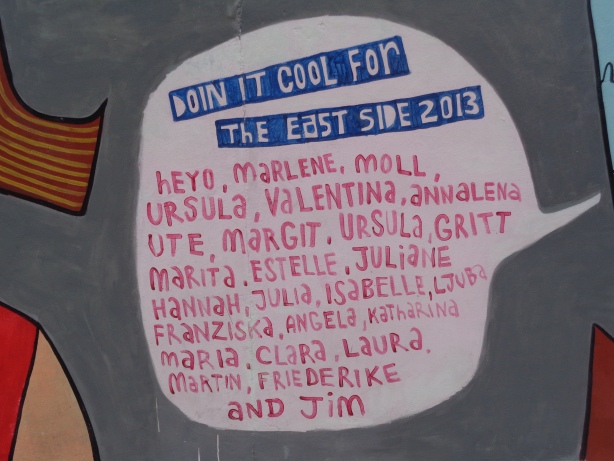 DOIN IT COOL FOR
THE EAST SIDE 2013
HEYO, MARLENE, MOLL,
URSULA, VALENTINA, ANNALENA
UTE, MARGIT, URSULA, GRITT
MARITA, ESTELLE, JULIANE
HANNAH, JULIA, ISABELLE, LJUBA
FRANZISKA, ANGELA, KATHARINA
MARIA, CLARA, LAURA,
MARTIN, FRIEDERIKE
AND JIM